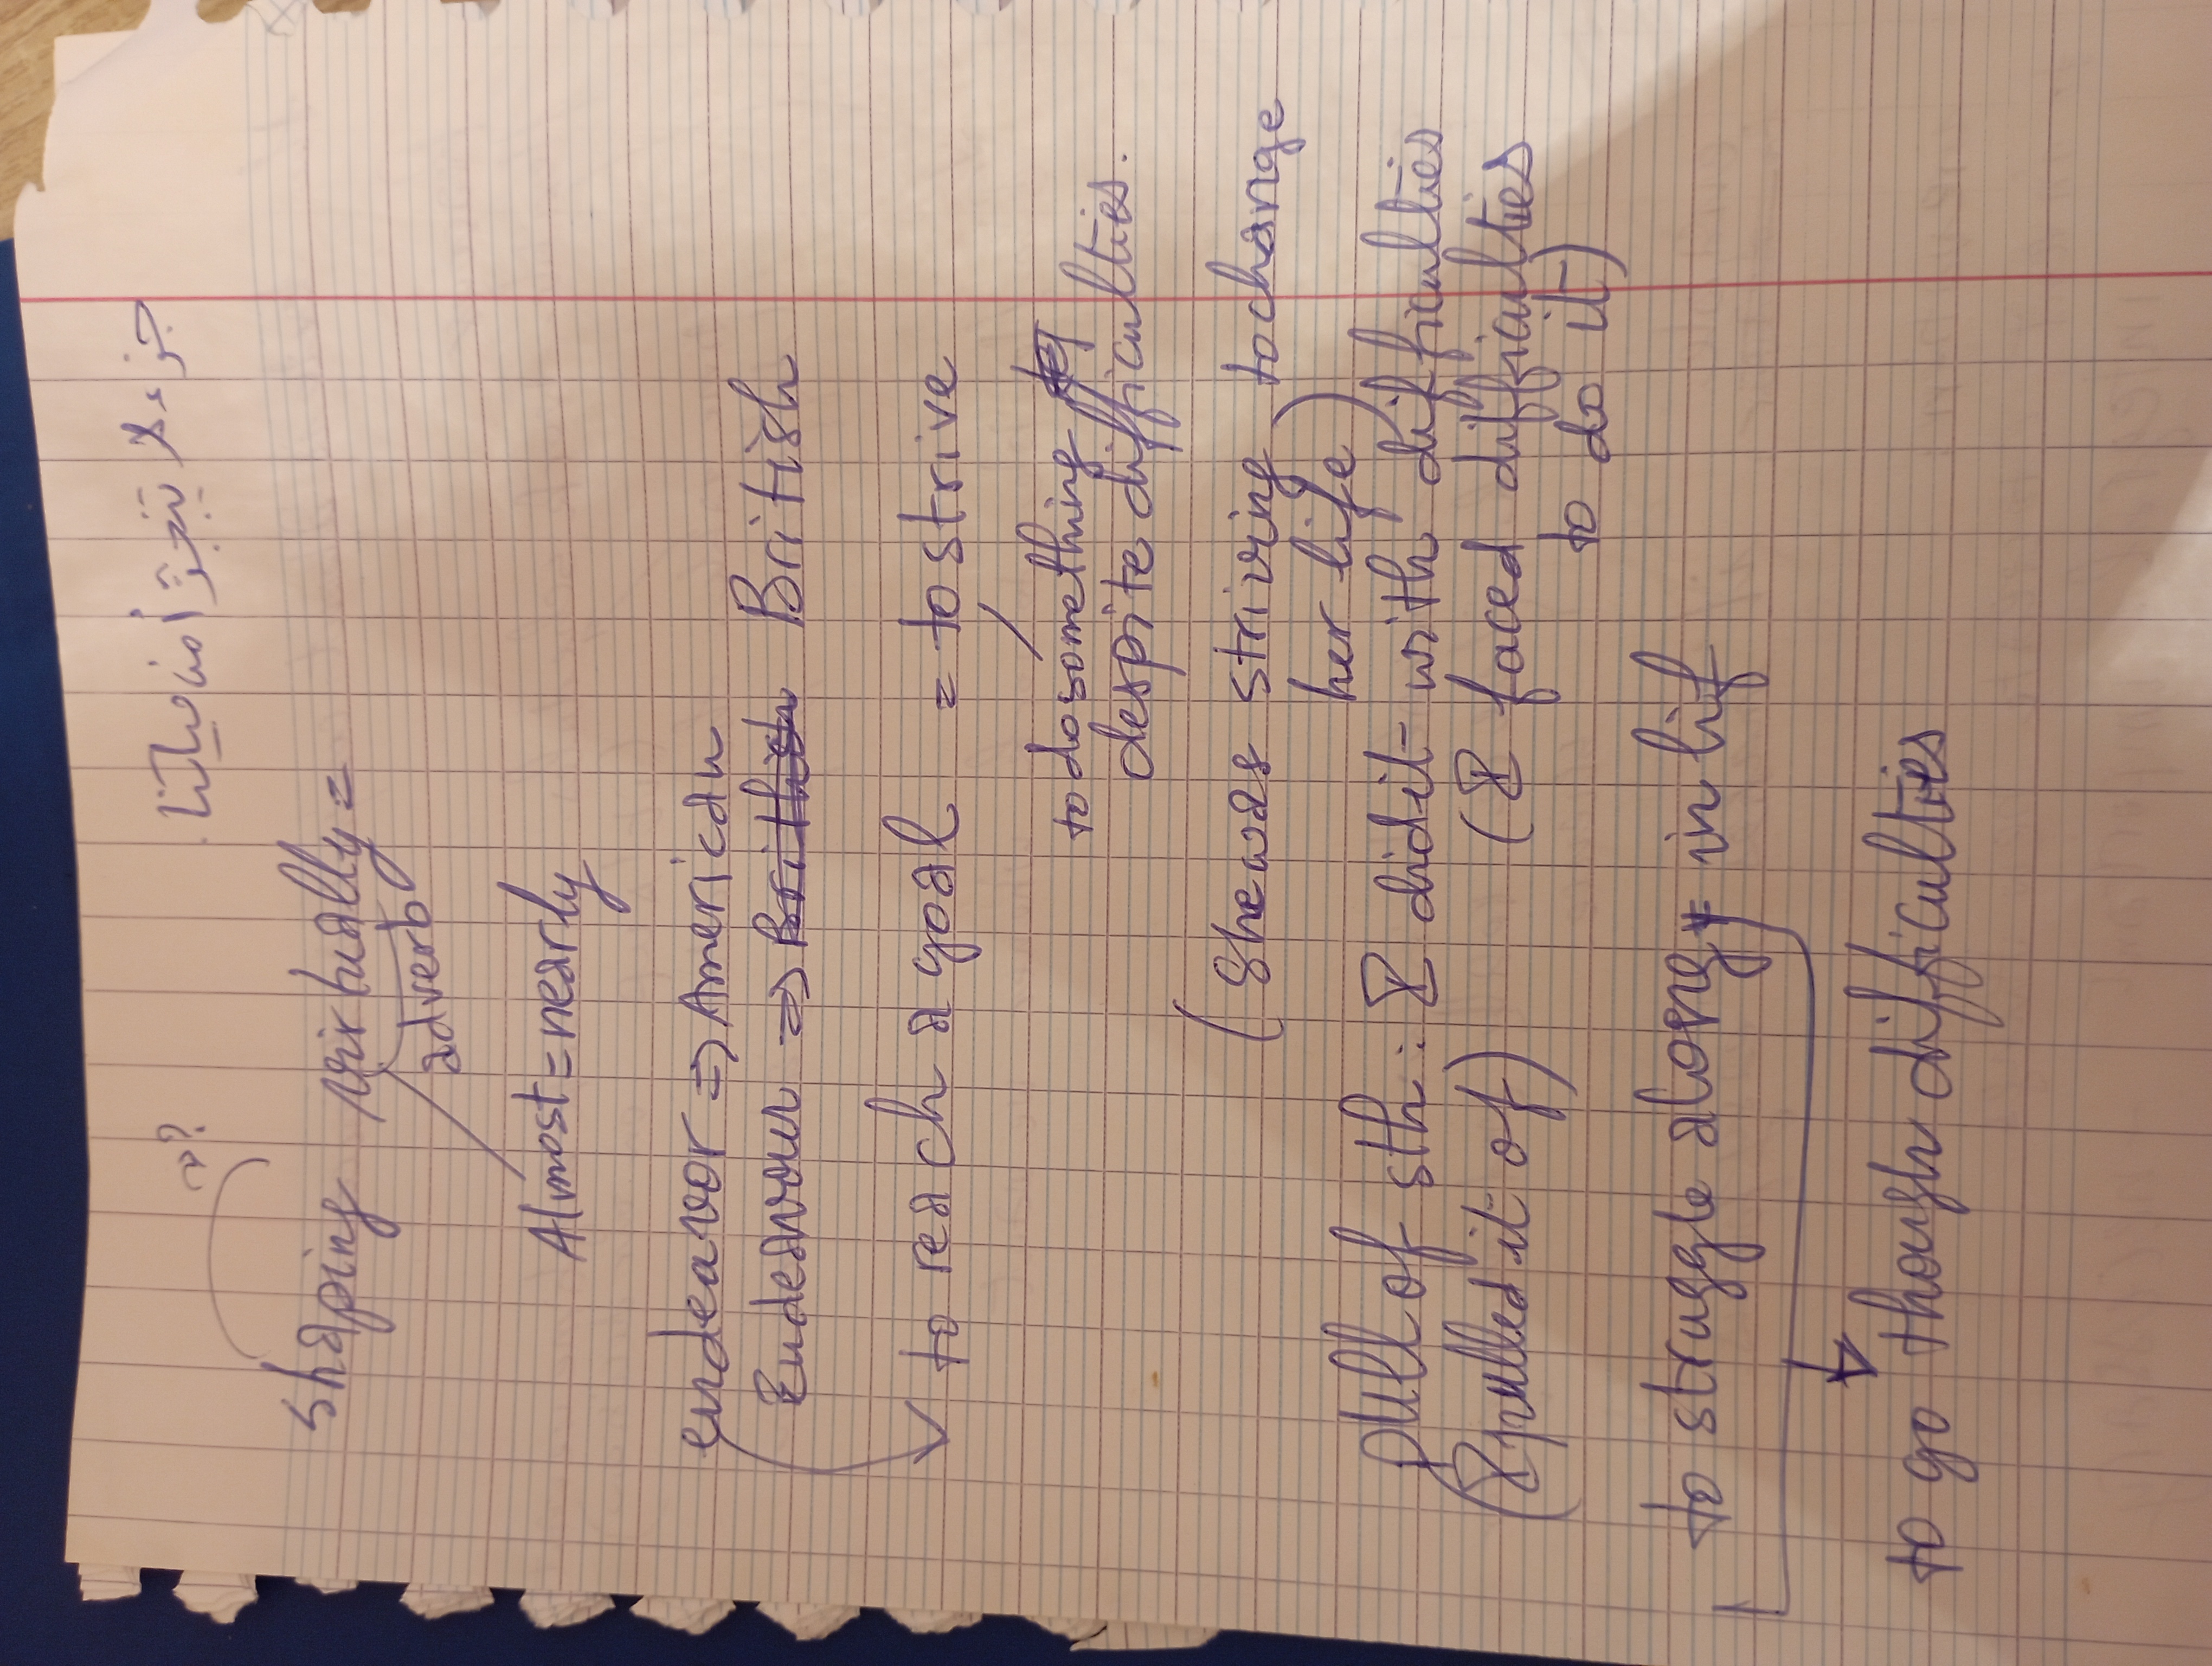 جزء لا يتجزأ من حياتنا
shaping virtually =
adverb
Almost = nearly
endeavor => American
Endeavour => British
to reach a goal = to strive
to do something
despite difficulties.
(She was striving to change
her life)
Pull of sth : I did it with difficulties
(I pulled it of) (I faced difficulties
to do it)
to struggle along = in lif
to go though difficulties